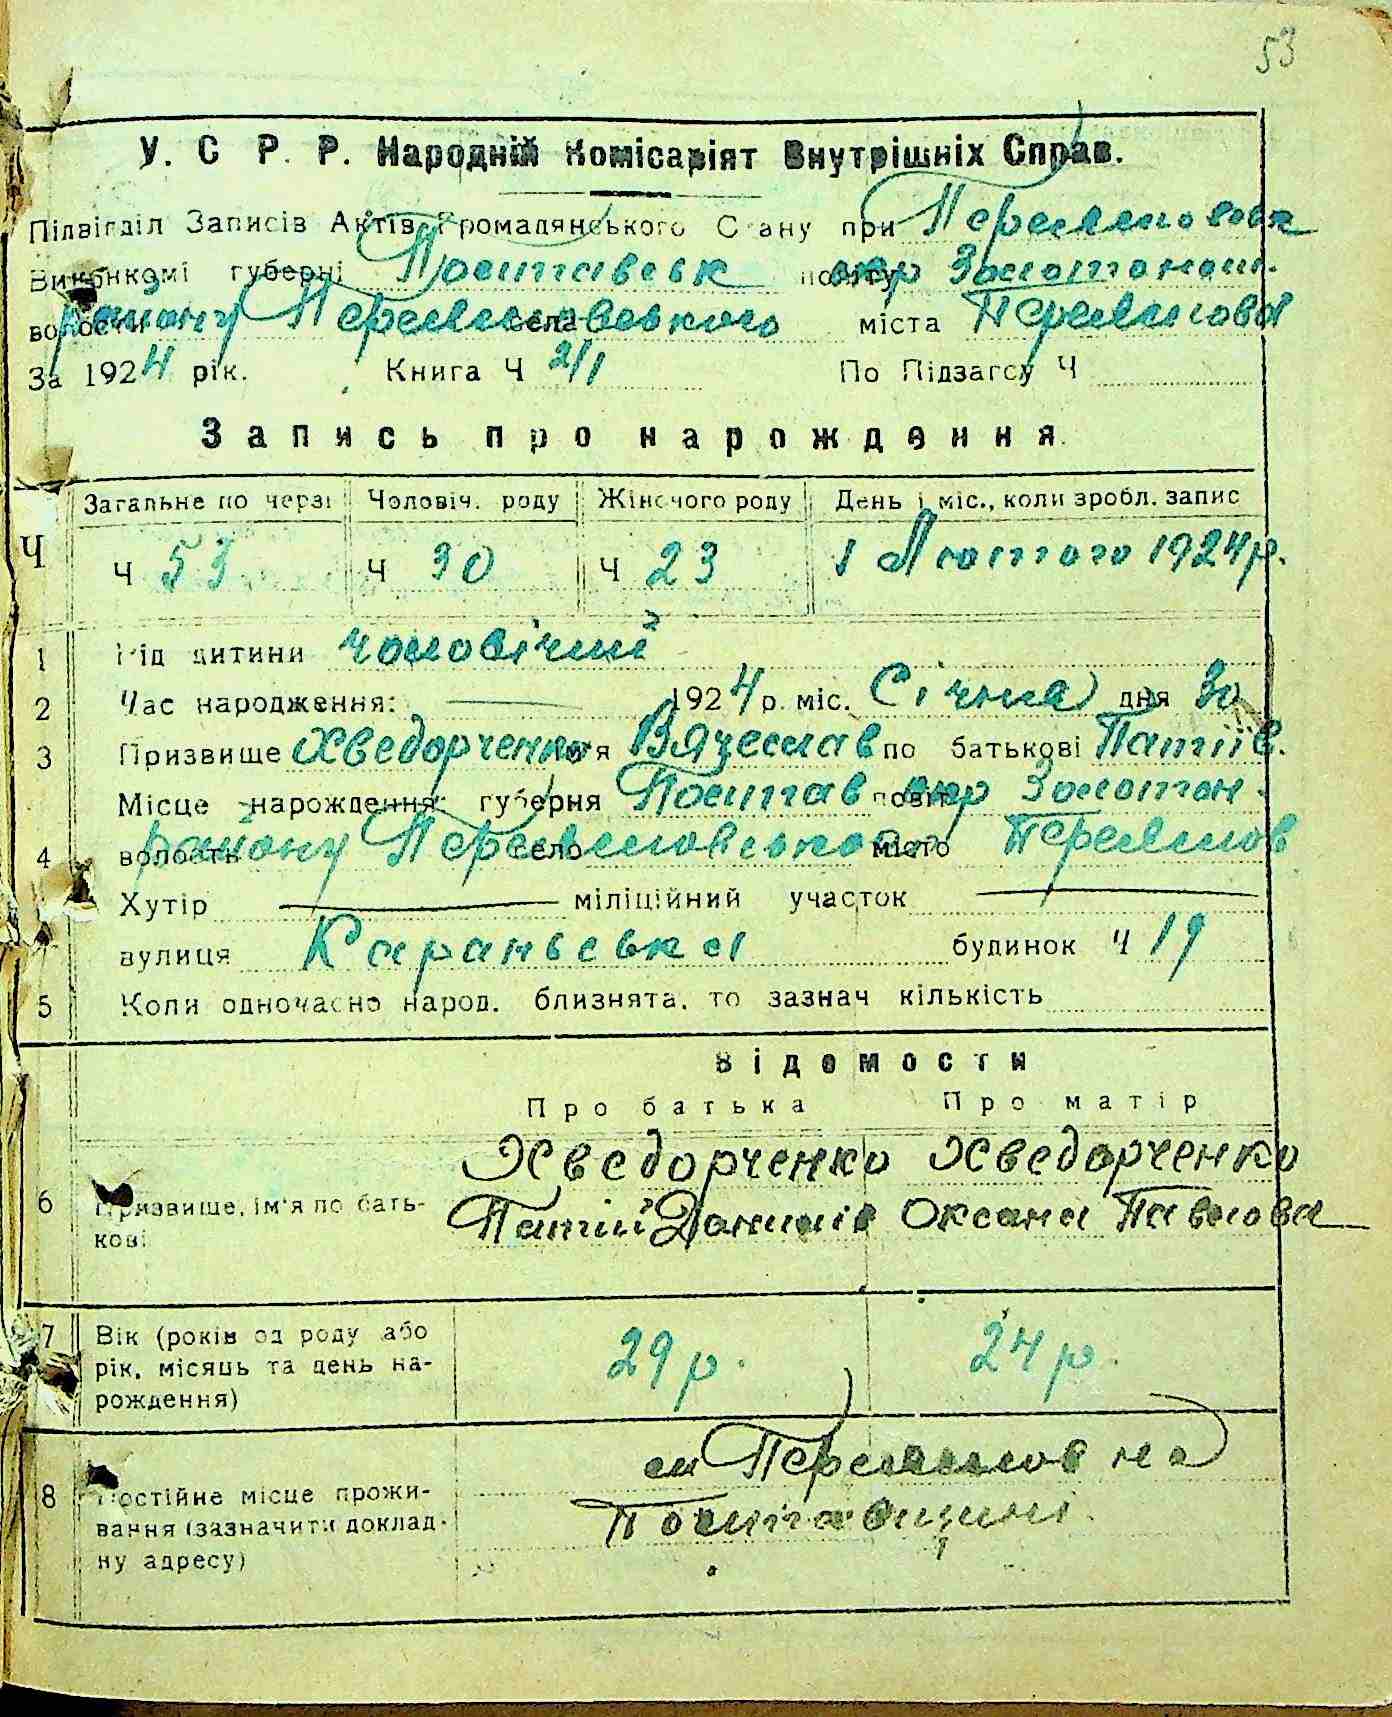 53
У. С. Р. Р. Народній Комісаріят Внутрішніх Справ.
Підвідділ Записів Актів Громадянського Стану при Переяславськ
Виконкомі губерні Полтавськ повіту окр Золотоніш.
волости району Переяславського села міста Переяслова
За 1924 рік. Книга Ч 2/1 По Підзагсу Ч
Запись про нарождення
Ч Загальне по черзі Чоловіч. роду Жіночого роду День і міс., коли зробл. запис
Ч 53 Ч 30 Ч 23 1 Лютого 1924 р.
1 Рід дитини чоловічий
2 Час народження: 1924 р. міс. Січня дня 30
3 Призвище Хведорченко ім'я Вячеслав по батькові Патіїв.
Місце нарождення: губерня Полтав повіт окр Золотон.
4 волость району Переяславського село місто Переяслов
Хутір міліційний участок
вулиця Караньська будинок Ч 19
5 Коли одночасно народ. близнята, то зазнач кількість
Відомости
Про батька Про матір
Хведорченко Хведорченко
6 Призвище, ім'я по бать- Патій Данилів Оксана Павлова
кові
7 Вік (років од роду або 29 р. 24 р.
рік, місяць та день на-
рождення)
м Переяслов на
8 Постійне місце прожи- Полтавщині
вання (зазначити доклад-
ну адресу)